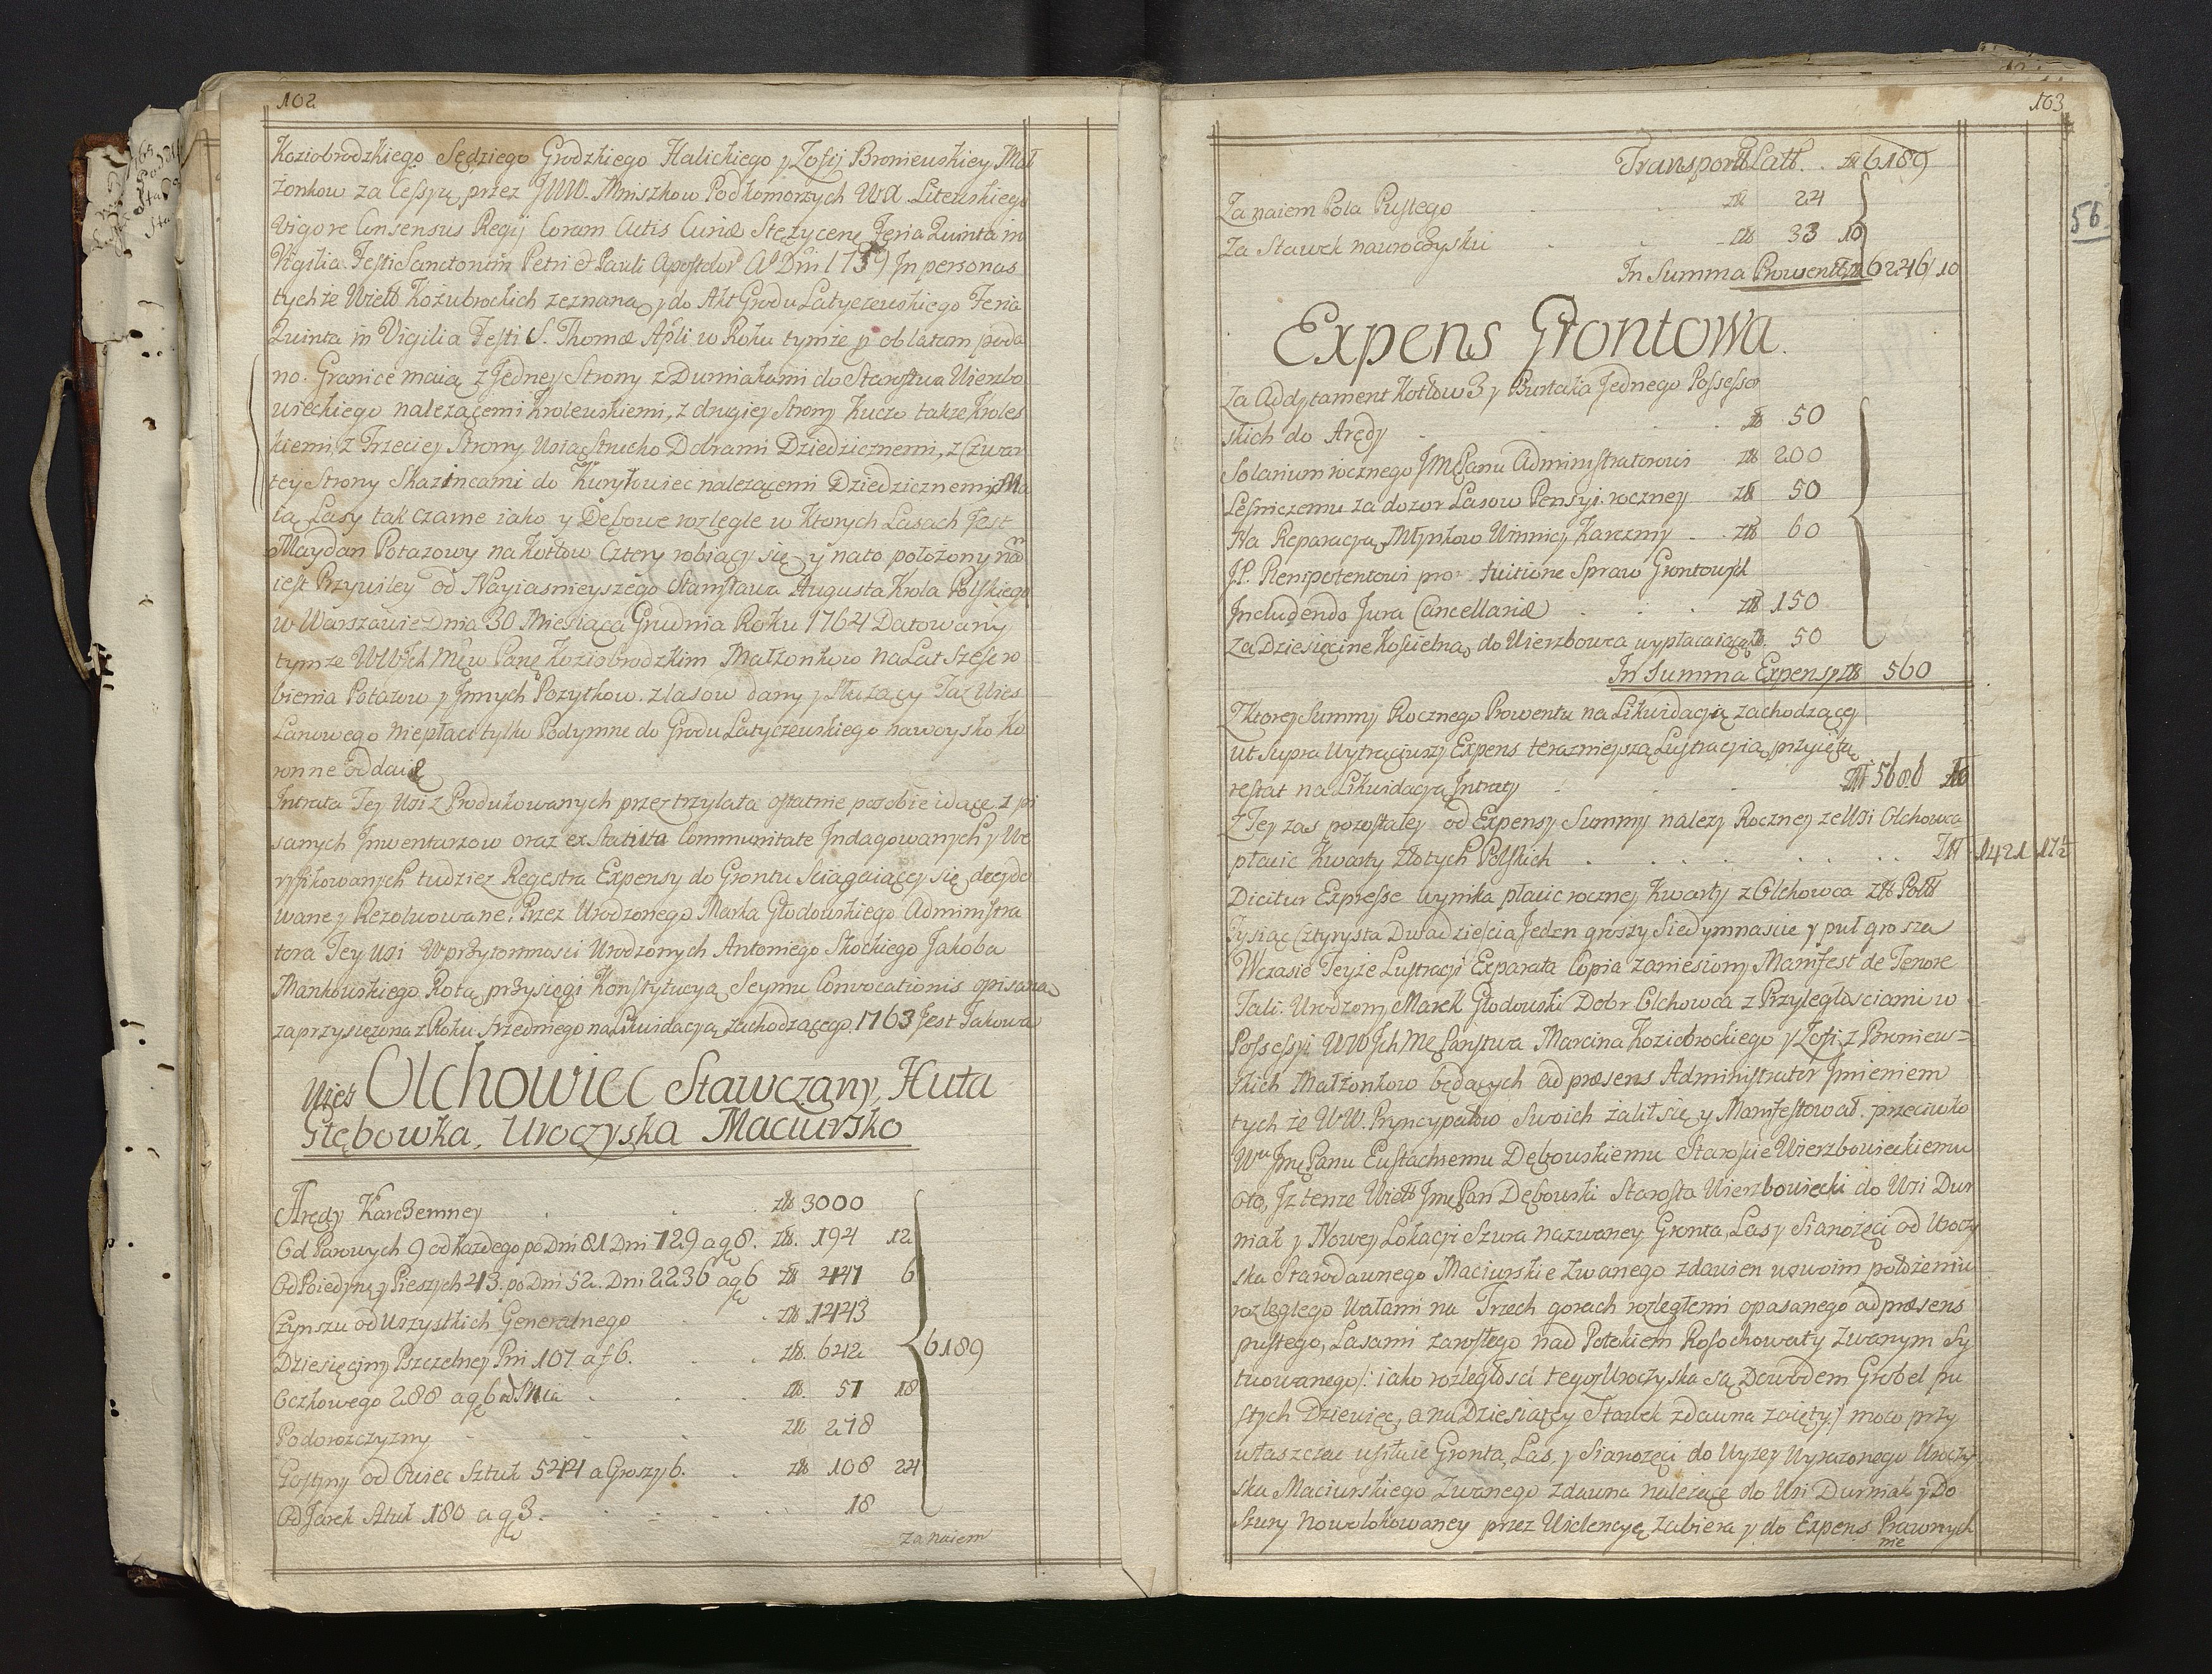 102
Koziobrodzkiego Sędziego Grodzkiego Halickiego y Zofij Broniewskiey Mał
żonkow za Cessyą przez JWW. Mniszkow Podkomorzych Wd. Litewskiego
Vigore Consensus Regij Coram Actis Curiæ Stężycens Feria Quinta in
Vigilia Festi Sanctorum Petri et Pauli Apostolor Aº Dni 1759 In personas
tychże Wielb Kożubrockich zeznaną y do Akt Grodu Latyczewskiego Feria
Quinta in Vigilia Festi S. Thomæ Apli w Roku tymże p oblatam poda
no. Granice maią z Jedney Strony z Durniakami do Starostwa Wierzbo
wieckiego należącemi Krolewskiemi, z drugiey Strony Kuczo także Kroles
kiemi, z Trzeciey Strony Wsią Strucho Dobrami Dziedzicznemi, z Czwar
tey Strony Skazincami do Kuryłowiec należącemi Dziedzicznemi, Ma
ią Lasy tak czarne iako y Dębowe rozległe w Ktorych Lasach Jest
Maydan Potazowy na Kotłow Cztery robiący się y nato położony na
iest Przywiley od Nayiasnieyszego Stanisława Augusta Krola Polskiego
w Warszawie Dnia 30 Miesiąca Grudnia Roku 1764 Datowany
tymże WWJch Mę w Panę Koziobrodzkim Małżonkow na Lat Szesc ro
bienia Potażow y Jnnych Pożytkow z lasow dany y służący Taż Wies
Łanowego niepłaci tylko Podymne do Grodu Latyczewskiego na woysko Ko
ronne oddaie
Intrata Tey Wsi z Produkowanych przez trzylata ostatnie posobie idące z pi
sanych Jnwentarzow oraz ex Statuta Communitate Jndagowanych y We
ryfikowanych tudziez Regestra Expensy do Gruntu sciągaiącey się
waney Rezolwowane. Przez Urodzonego Marka Głodowskiego Administra
tora Tey Wsi w przytomnosci Urodzonych Antoniego Skockiego Jakoba
Mankowskiego Rotą przysięgi Konstytucyą Seymu Convocationis opisaną
zaprzysiężona z Roku srzedniego na Likwidacyą zachodzącego 1763 Jest Takowa
Wies Olchowiec Stawczany, Huta
Głębowka, Uroczyska Maciursko
Arędy Karczemney . . . złł 3000
Od Parowych 9 od każdego po Dni 81 Dni 729 a gę 8. złł. 194 12
Od Poiedyną y Pieszych 43. po Dni 52. Dni 2236 a gę 6 złł 447 6
Czynszu od wszystkich Generalnego . . złł 1443
Dziesięciny Pszczelney Pni 107 a f 6. . . złł. 642
Oczkowego 288 a gę 6 od Pnia . . złł. 57 18
6189
Podorożczyzny . . . złł 278
Gostyny od Owiec Sztuk 544 a Groszy 6. . złł 108 24
Od Jarek Sztuk 180 a gę 3. . . . 18
za naiem
103
Transport Latt. . złł 6189
Za naiem Pola Pustego . . złł 24
Za Stawek na uroczysku . . złł 33 10
In Summa Prowentu złł 6246 10
56
Expens Grontowa.
Za Addytament Kotłow 3 y Burtaka Jednego Possessor
skich do Arędy . . . złł 50
Solarium rocznego JMę Panu Administratorowi złł 200
Lesniczemu za dozor Lasow Pensyi roczney złł 50
Na Reparacyą Młynkow Winnicy Karczmy . złł 60
J.P. Plenipotentowi pro tuitione Spraw Grontowych
Jncludendo Jura Cancellariæ . . . złł 150
Za Dziesięcine Koscielną do Wierzbowca wypłacaiącą złł. 50
In Summa Expensy złł 560
Z Ktorey Summy Rocznego Prowentu na Likwidacyią zachodzącey
ut Supra Wytrąciwszy Expens terazniejszą Lustracyią przyiętą
restat na Likwidacyą Intraty . . złł 5686 10
Z Tey zas pozostałey od Expensy Summy należy Roczney ze Wsi Olchowca
płacic Kwarty Złotych Polskich . . . . . . . Złł 1421 17½
Dicitur Expresse wynika płacic roczney Kwarty z Olchowca złł Polł
Tysiąc Cztyrysta Dwadziescia Jeden groszy Siedymnascie y puł grosza
Wczasie Teyże Lustracyi Exparata Copia zaniesiony Manifest de Tenore
Tali. Urodzony Marek Głodowski Dobr Olchowca z Przyległosciami w
Possessyi WWJch Mę Państwa Marcina Koziobrockiego y Zofi z Broniew=
skich Małżonkow będących ad præsens Administrator Jmieniem
tych że WW. Pryncypałow Swoich żalił się y Manifestował przeciwko
Wu Jmę Panu Eustachiemu Dębowskiemu Staroscie Wierzbowieckiemu
oto, Jz tenze Wielb Jmę Pan Dębowski Starosta Wierzbowiecki do Wsi Dur
niak y Nowey Lokacyi Szura nazwaney Gronta, Lasy Sianożęci od Uroczy
ska Starodawnego Maciurskie zwanego zdawien wswoim położeniu
rozległego Wałami na Trzech gorach rozległemi opasanego ad præsens
pustego, Lasami zarosłego nad Potokiem Rosochowaty zwanym Sy
tuowanego /: iako rozległosci tegoż Uroczyska są Dowodem Grobel pu
stych Dziewięc, a na Dziesiątey Stawek zdawna zaięty :/ moco przy
właszczać usiłuie Gronta, Las, y Sianożęci do Wyzey Wyrazonego Uroczy
ska Maciurskiego Zwanego zdawna należące do Wsi Durniak y Do
Szury Nowolokowaney przez Wiolencyę Zabiera y do Expens Prawnych
nie